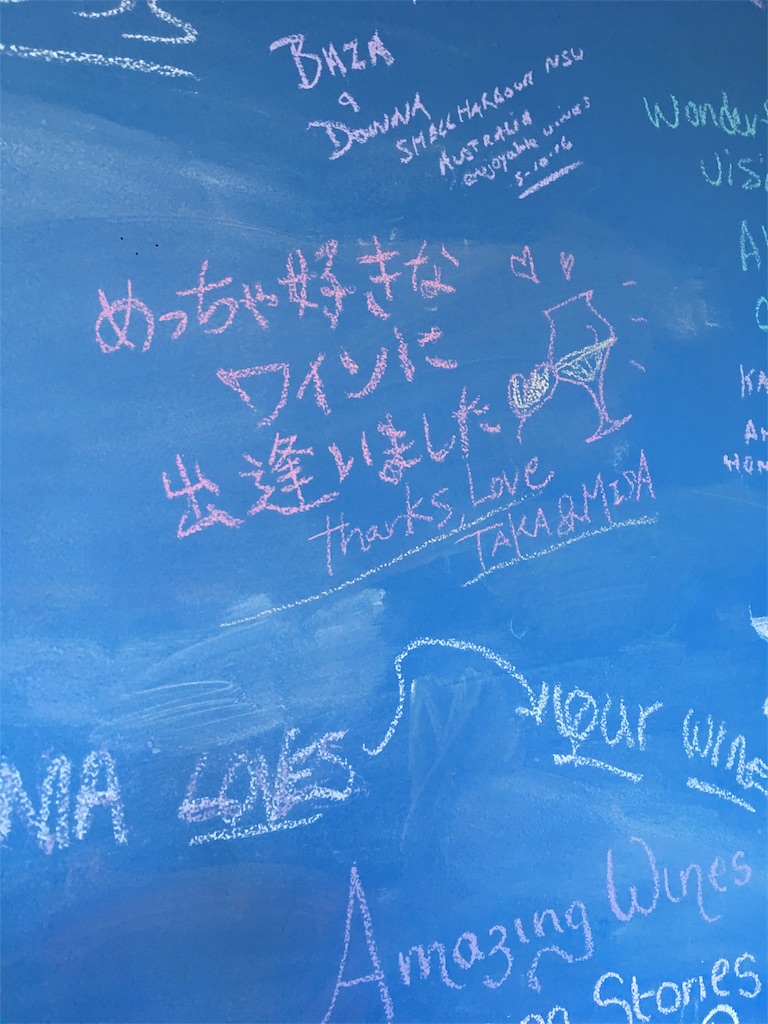 BAZA
&
DONNA
SMALL HARBOUR NSW
AUSTRALIA
enjoyable wines
5-10-16
めっちゃ好きな
ワインに
出逢いました
Thanks, Love
TAKA&MISA
NIA LOVES your wine
Amazing Wines
Stories